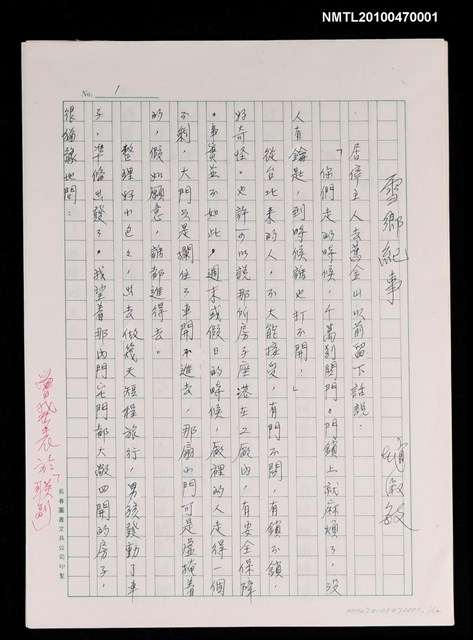 NMTL20100470001
No. 1
雪鄉紀事
居停主人去舊金山以前留下話說：
「你們走的時候，千萬別關門。門鎖上就麻煩了，沒
人有鑰匙，到時候誰也打不開！」
從台北來的人，不大能接受，有門不關，有鎖不鎖，
好奇怪。也許可以說那所房子座落在工廠內，有安全保障
。事實並不如此，週末或假日的時候，廠裡的人走得一個
不剩，大門只是攔住了車開不進去，那扇小門可是虛掩着
的，假如願意，誰都進得去。
整理好小包之，出去做幾天短程旅行，男孩發動了車
子，準備出發了。我望着那內門宅門都大敞四開的房子，
很猶豫地問：
曾發表於「聯副」
長春圖書文具公司印製